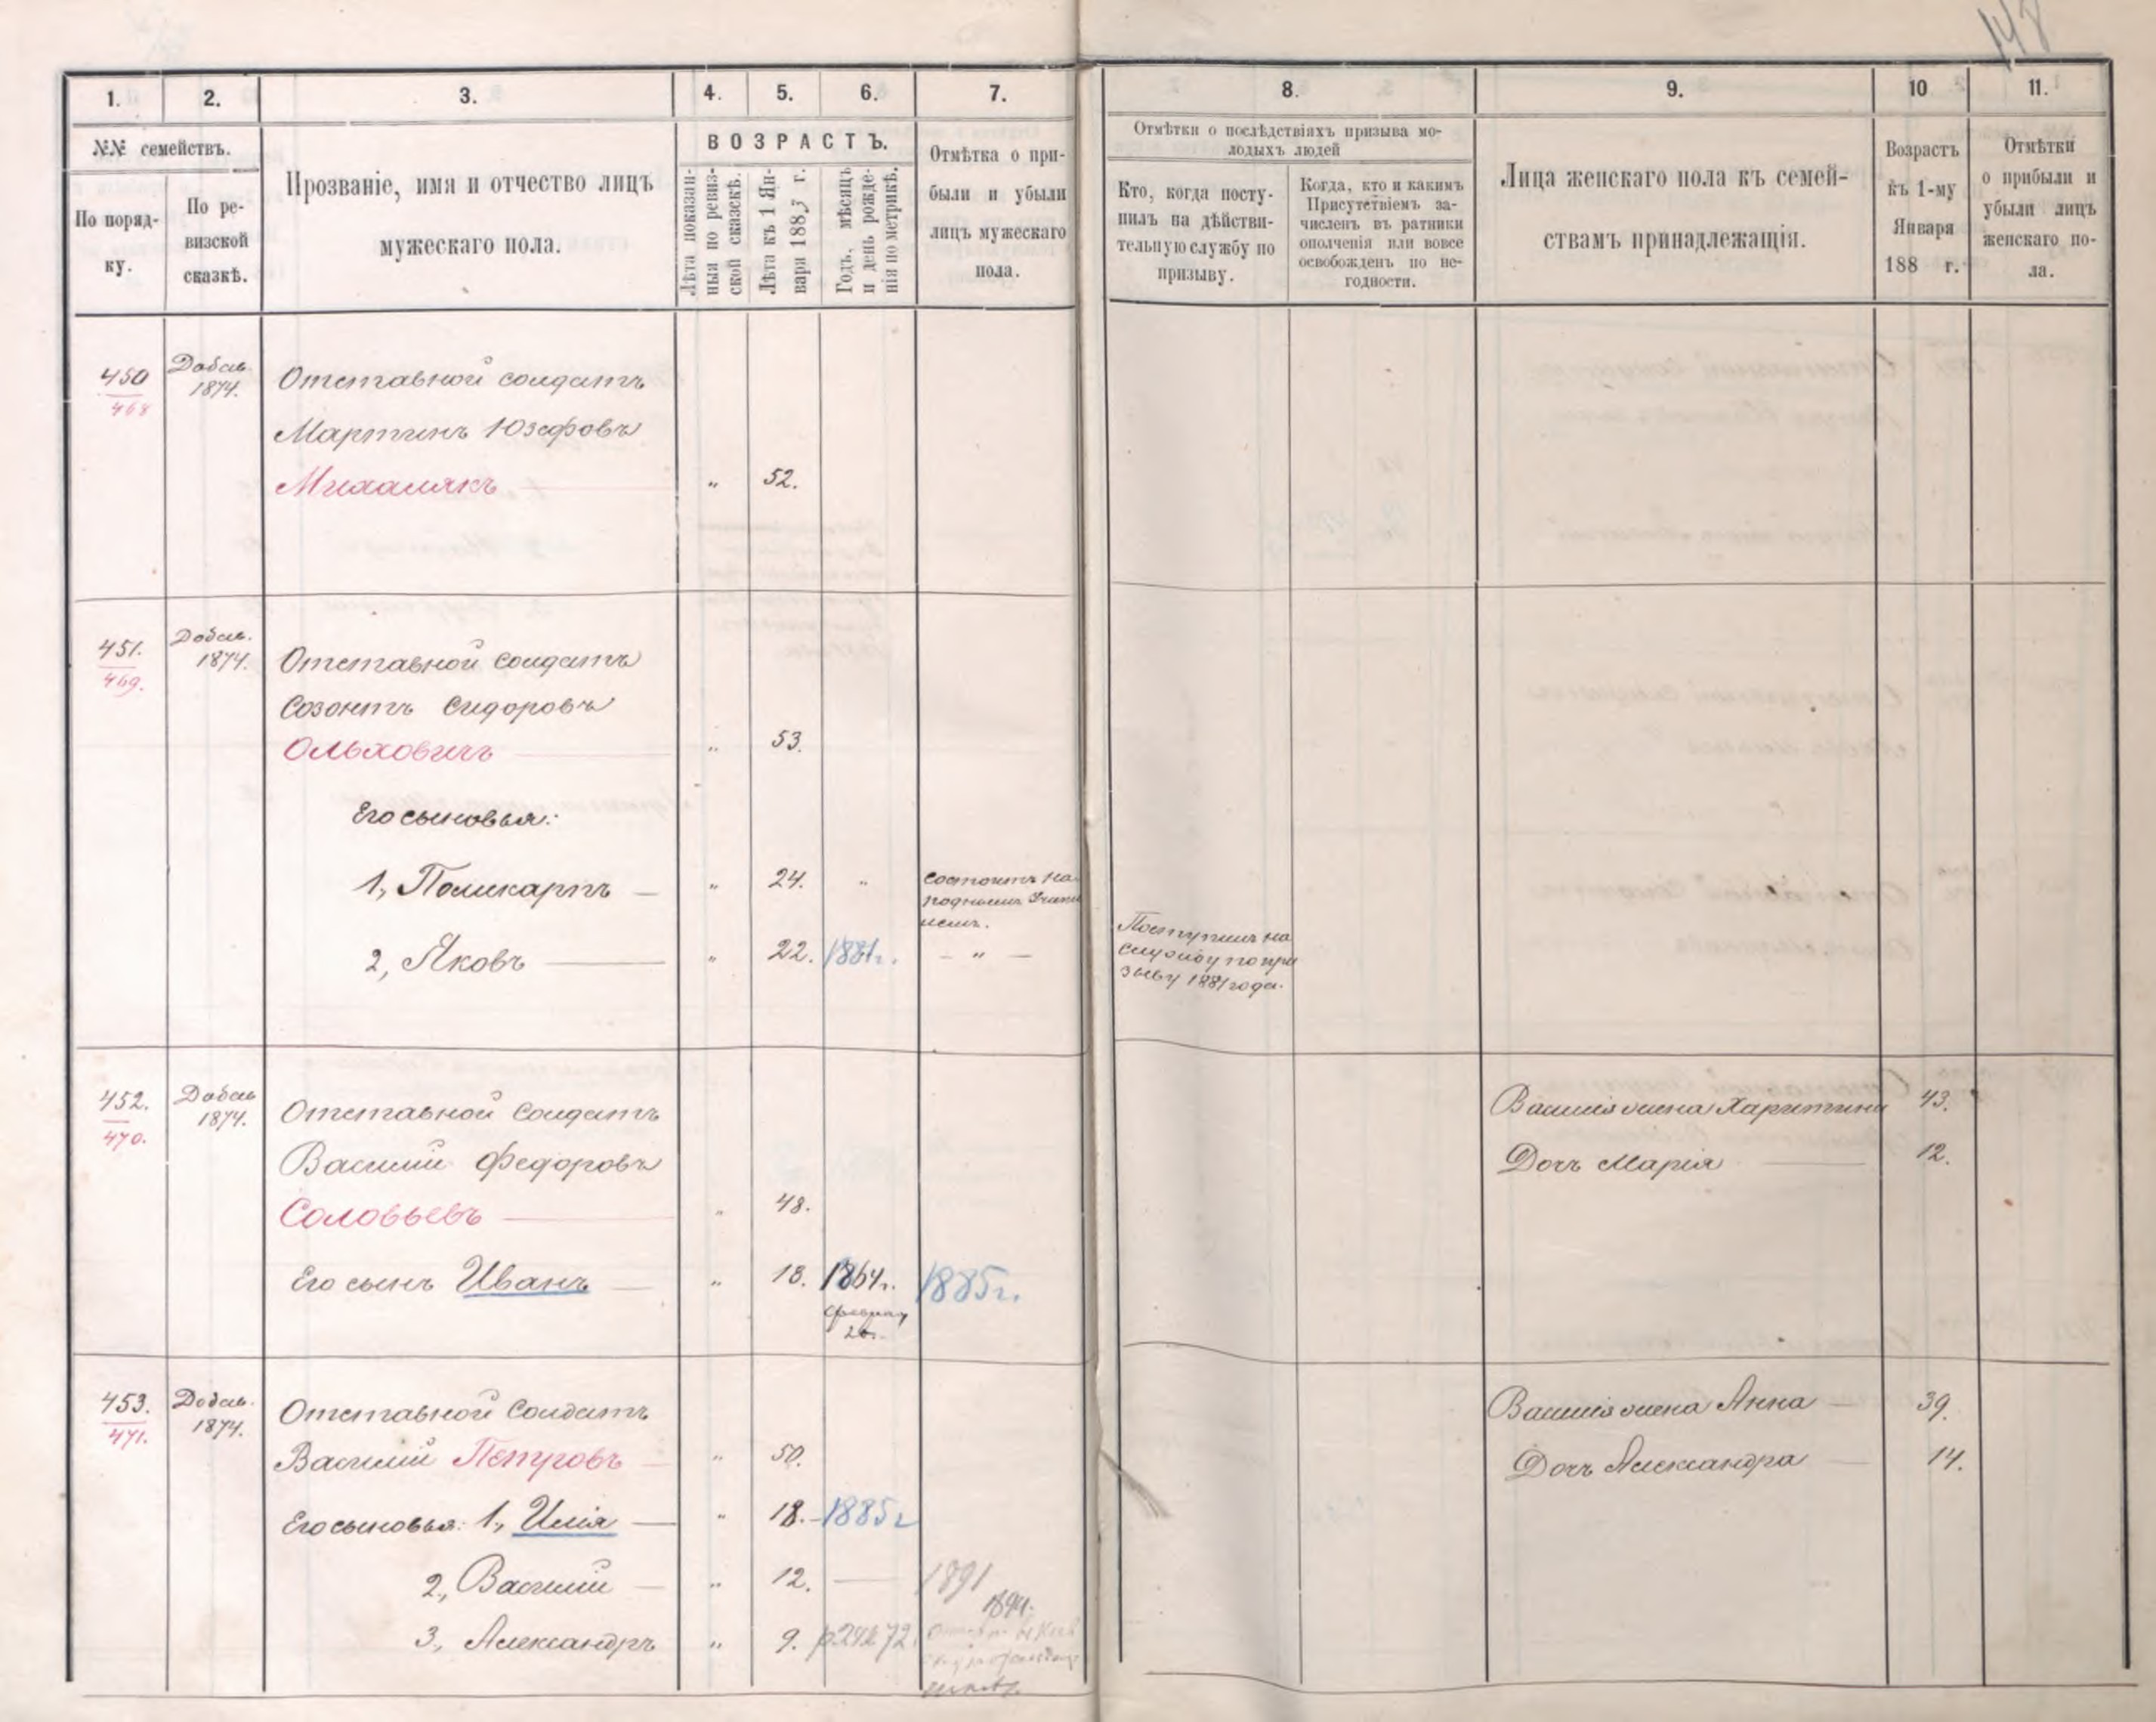 148
1. 2. 3. 4. 5. 6. 7. 8. 9. 10 11.
№№ семействъ.
По поряд-
ку.
По ре-
визской
сказкѣ.
Прозваніе, имя и отчество лицъ
мужескаго пола.
ВОЗРАСТЪ.
Лѣта показан-
ныя по ревиз-
ской сказкѣ.
Лѣта къ 1 Ян-
варя 1883 г.
Годъ, мѣсяцъ
и день рожде-
нія по метрикѣ.
Отмѣтка о при-
были и убыли
лицъ мужескаго
пола.
Отмѣтки о послѣдствіяхъ призыва мо-
лодыхъ людей
Кто, когда посту-
пилъ на дѣйстви-
тельную службу по
призыву.
Когда, кто и какимъ
Присутствіемъ за-
численъ въ ратники
ополченія или вовсе
освобожденъ по не-
годности.
Лица женскаго пола къ семей-
ствамъ принадлежащія.
Возрастъ
къ 1-му
Января
188 г.
Отмѣтки
о прибыли и
убыли лицъ
женскаго по-
ла.
450
468
Добав.
1874.
Отставной солдатъ
Мартинъ Юзефовъ
Михалякъ „ 52.
451.
469.
Добав.
1874.
Отставной солдатъ
Созонтъ Сидоровъ
Ольховичъ „ 53.
Его сыновья:
1, Поликарпъ — „ 24. „
состоитъ на
роднымъ Учите
лемъ.
2, Яковъ — „ 22. 1881г. — „ —
Поступилъ на
службу по при
зыву 1881 года.
452.
470.
Добав
1874.
Отставной солдатъ
Василій Федоровъ
Соловьевъ — „ 48.
Его сынъ Иванъ — „ 18. 1864г. 1885г.
Василія жена Харитина 43.
Дочь Марія — 12.
453.
471.
Добав.
1874.
Отставной Солдатъ
Василій Петровъ — „ 50.
Его сыновья: 1, Илія — „ 18. - 1885г
2, Василій — „ 12. — 1891
1894.
3, Александръ „ 9.
Василія жена Анна — 39.
Дочь Александра — 14.